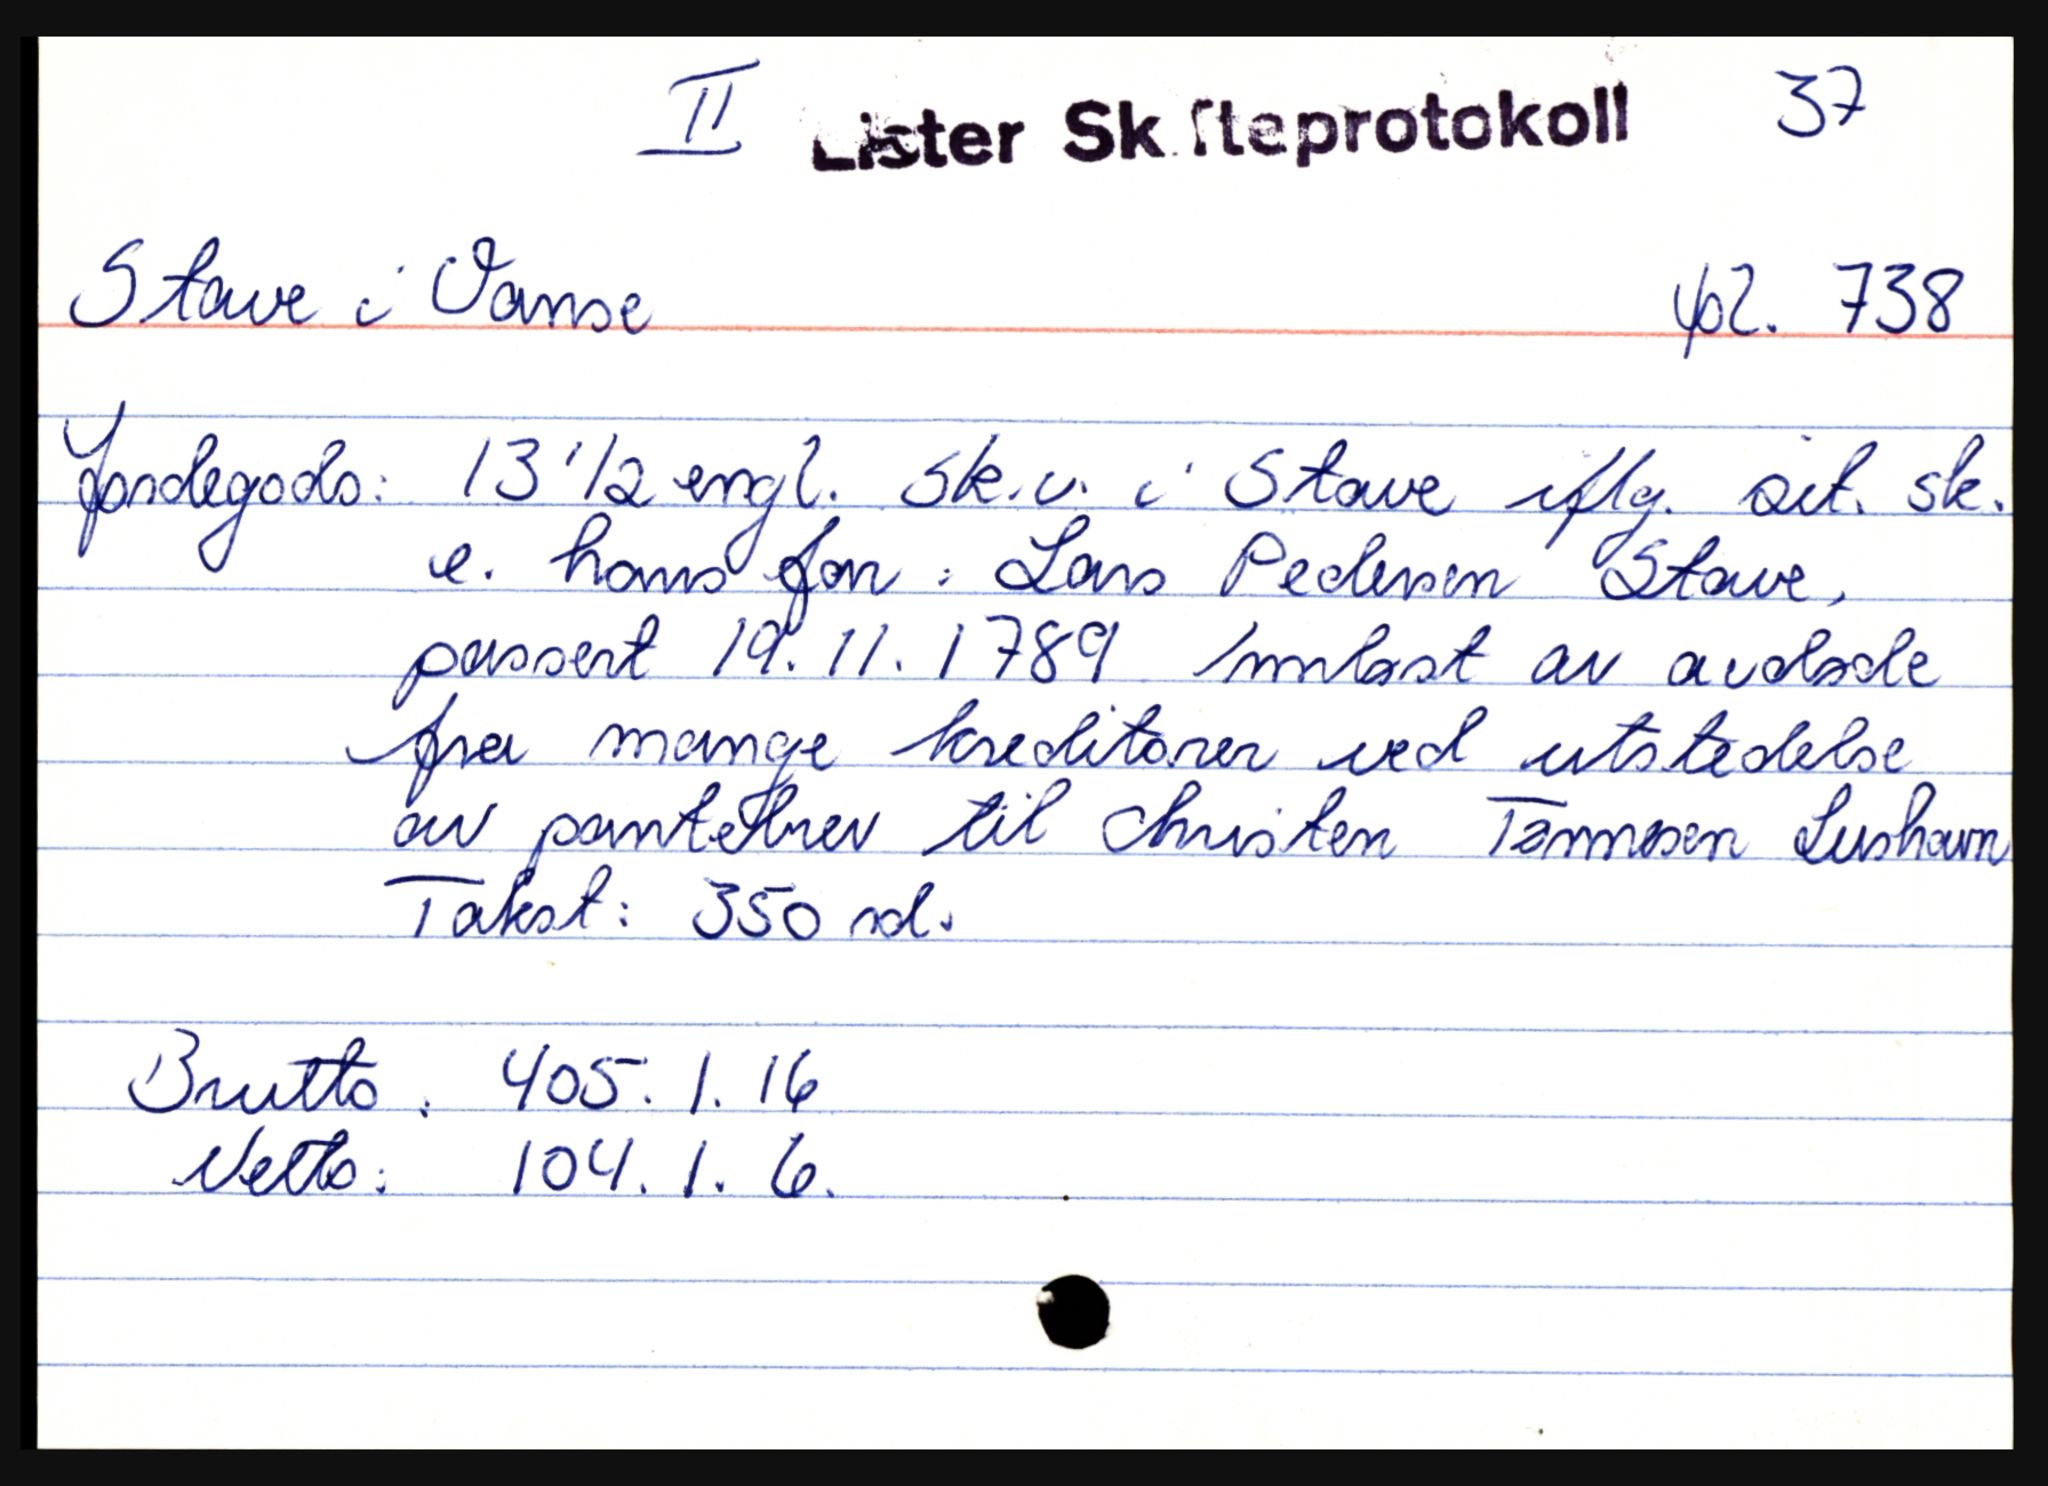 II Lister Skifteprotokoll 37
Stave i Vanse fol. 738
Jordegods: 13 1/2 engl. sk.v. i Stave iflg. sit. sk.
e. hans far: Lars Pedersen Stave,
passert 19.11.1789 Innløst av avdøde
fra mange kreditorer ved utstedelse
av pantebrev til Christen Tønnesen Lushavn
Takst: 350 rd.
Brutto: 405.1.16
Netto: 104.1.6.